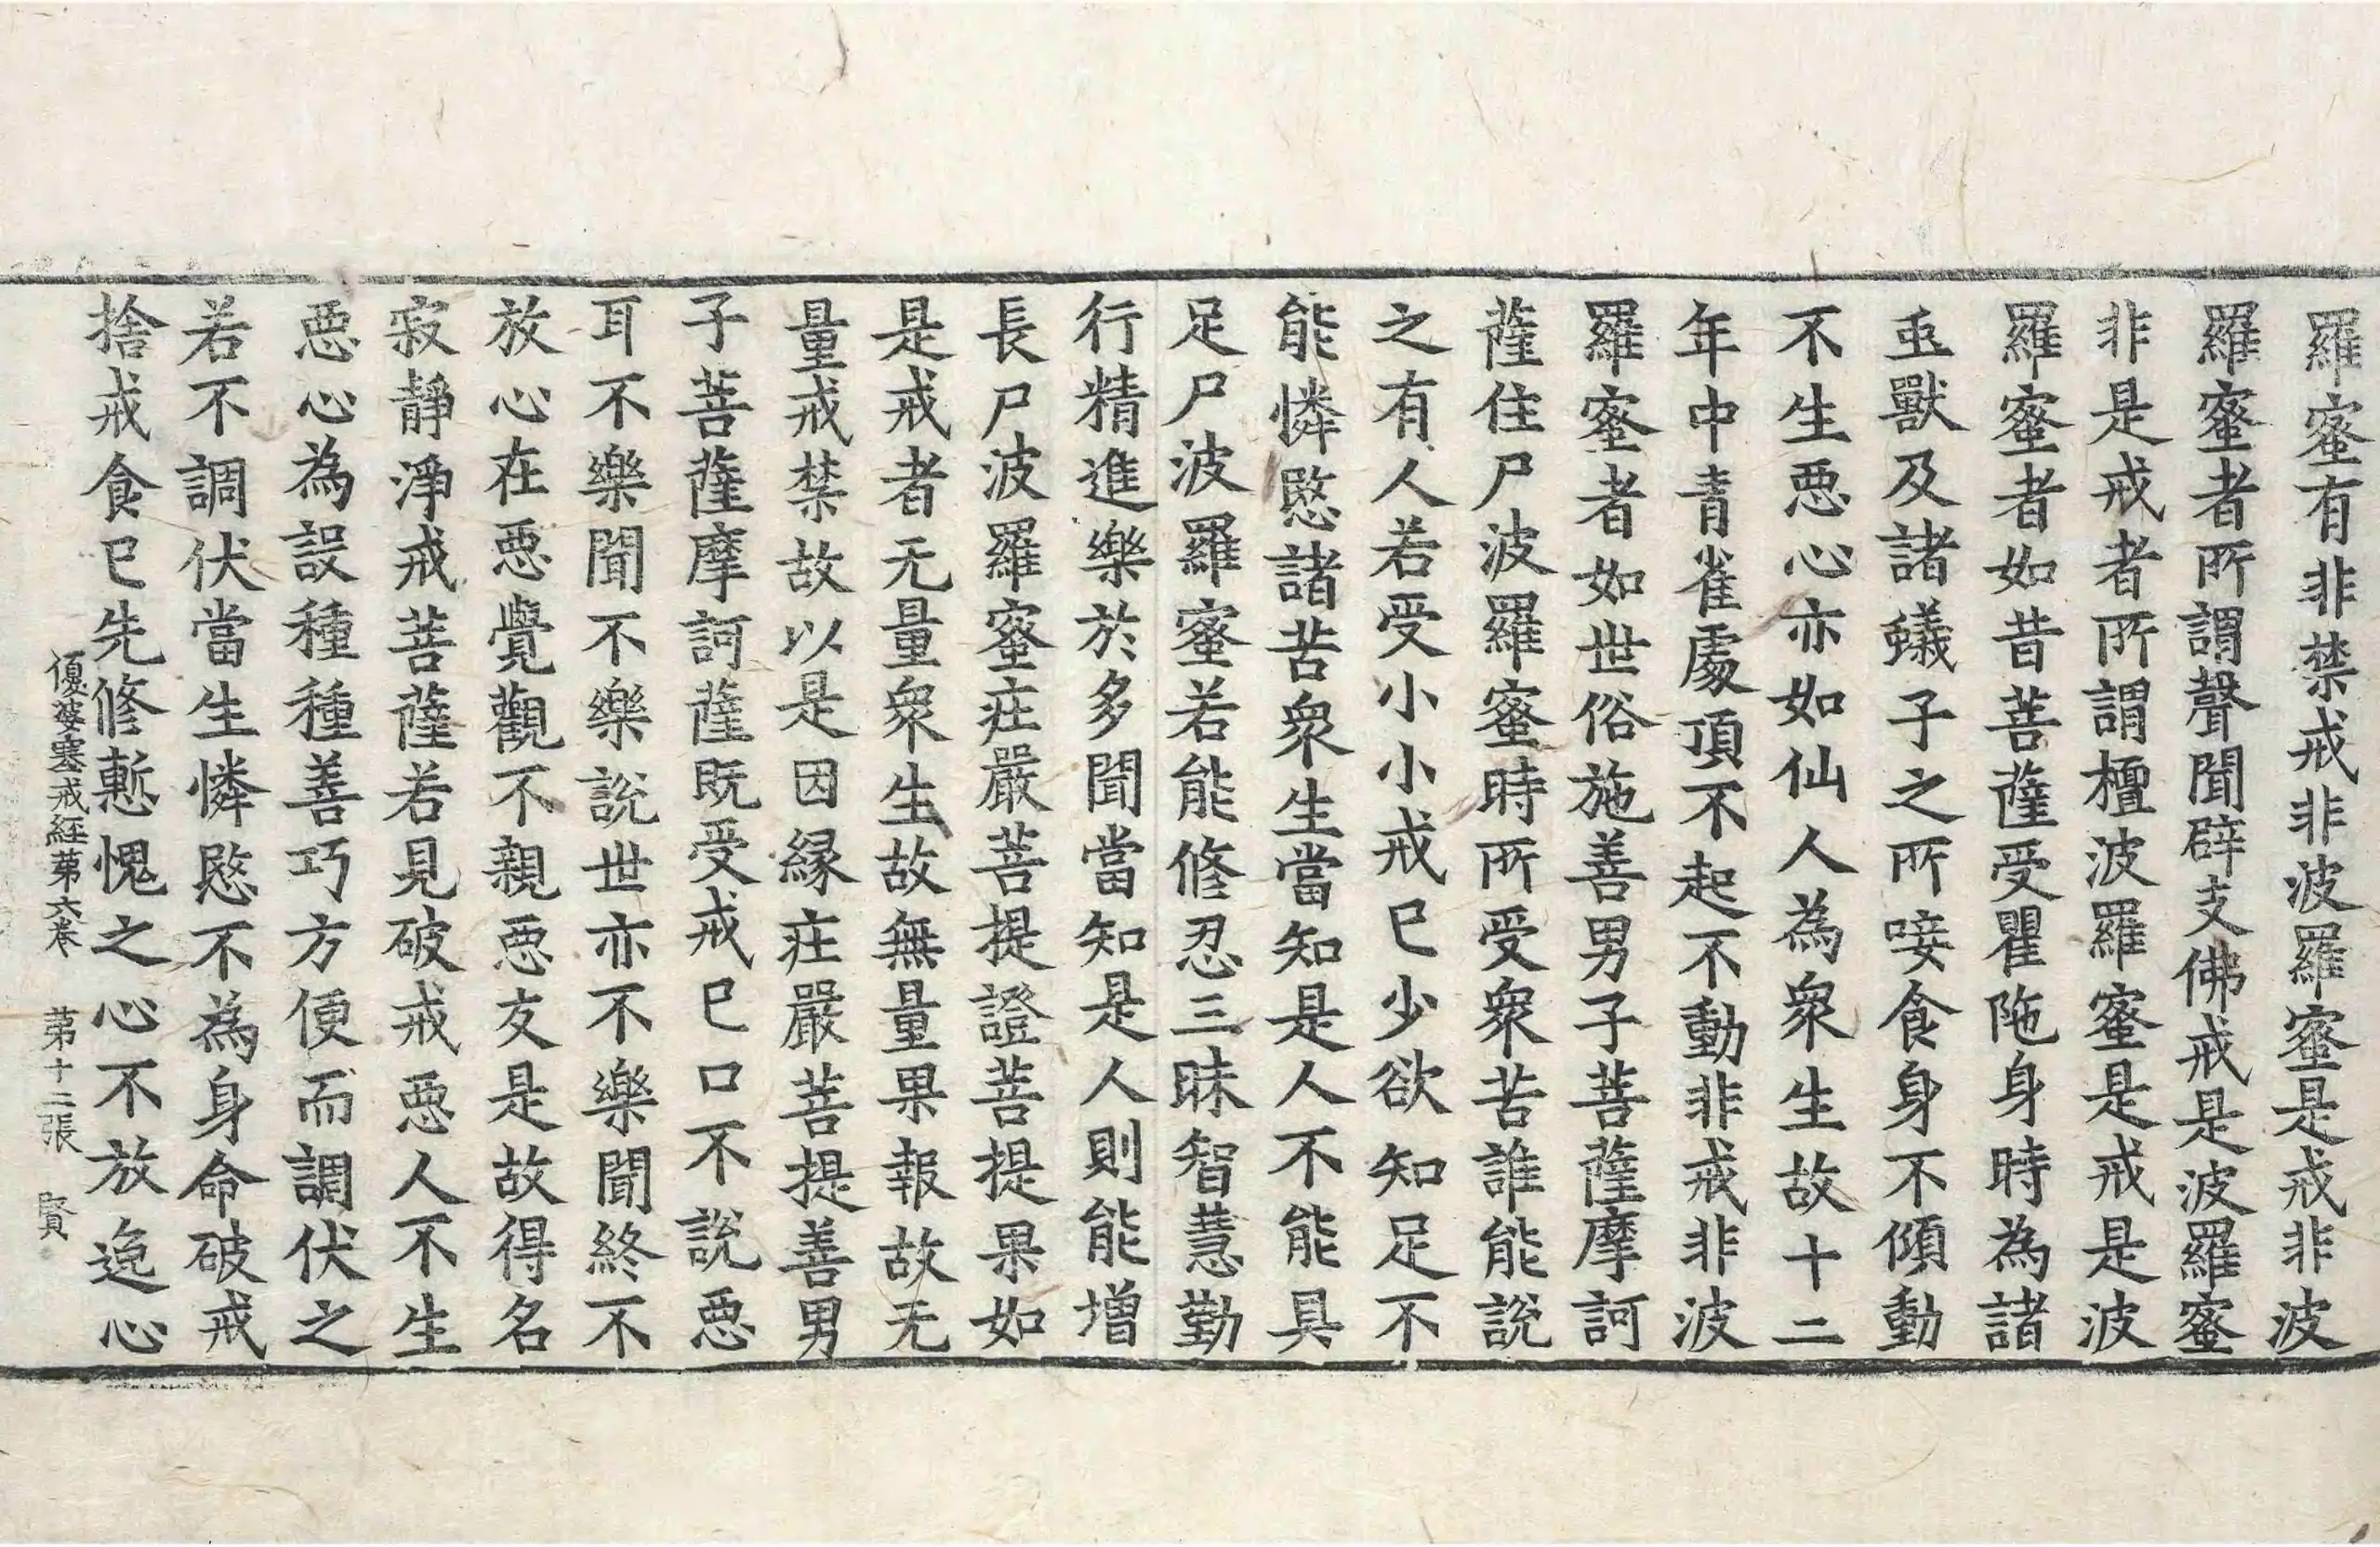 羅蜜有非禁戒非波羅蜜是戒非波
羅蜜者所謂聲聞辟支佛戒是波羅蜜
非是戒者所謂檀波羅蜜是戒是波
羅蜜者如昔菩薩受瞿陁身時為諸
䖝獸及諸蟻子之所唼食身不傾動
不生惡心亦如仙人為衆生故十二
年中青雀處頂不起不動非戒非波
羅蜜者如世俗施善男子菩薩摩訶
薩住尸波羅蜜時所受衆苦誰能說
之有人若受小小戒已少欲知足不
能憐愍諸苦衆生當知是人不能具
足尸波羅蜜若能修忍三昧智慧勤
行精進樂於多聞當知是人則能增
長尸波羅蜜莊嚴菩提證菩提果如
是戒者无量衆生故無量果報故无
量戒禁故以是因縁莊嚴菩提善男
子菩薩摩訶薩既受戒已口不說惡
耳不樂聞不樂說世亦不樂聞終不
放心在惡覺觀不親惡友是故得名
寂靜淨戒菩薩若見破戒惡人不生
惡心為設種種善巧方便而調伏之
若不調伏當生憐愍不為身命破戒
捨戒食已先修慙愧之心不放逸心
優婆塞戒經第六卷 第十二張 賢